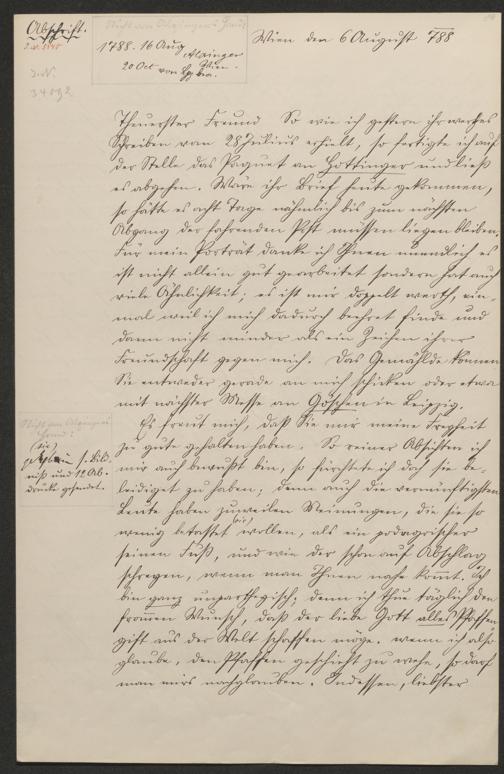 Abschrift.
Nicht von Alxingers Hand
1788. 16 Aug Alxinger
Wien.
20 Oct
Wien den 6 August 788
J.N.
34092
Theuerster Freund So wie ich gestern ihr werthes
Schreiben vom 28 Julius erhielt, so fertigte ich auf
der Stelle das Paquet an Hottinger und ließ
es abgehen. Wäre ihr Brief heute gekommen,
so hätte es acht Tage nähmlich bis zum nächsten
Abgang der fahrenden Post müssen liegen bleiben.
Für mein Porträt danke ich Ihnen unendlich es
ist nicht allein gut gearbeitet sondern hat auch
viele Ähnlichkeit; es ist mir doppelt werth, ein-
mal weil ich mich dadurch beehret finde und
dann nicht minder als ein Zeichen ihrer
Freundschaft gegen mich. Das Gemählde können
Sie entweder gerade an mich schicken oder etwa
mit nächster Messe an Göschen in Leipzig.
Es freut mich, daß Sie mir meine Freyheit
zu gute gehalten haben. So reiner Absichten ich
mir auch bewußt bin, so fürchtete ich doch sie be-
leidiget zu haben; denn auch die vernünftigsten
Leute haben zuweilen Meinungen, die sie so
wenig betastet (sic) wollen, als ein podagrischer
seinen Fuß, und wie der schon auf Abschlag
schreyen, wenn man Ihnen nahe kommt. Ich
bin ganz unpartheyisch, denn ich thue täglich den
frommen Wunsch, daß der liebe Gott alles Pfaffen
gift aus der Welt schaffen möge. wenn ich also
glaube, den Pfaffen geschieht zu wehe, so darf
man mirs nachglauben. Indessen, liebster
Nicht von Alxingers
Hand:
(sic)
s. Bild-
niß und 12 Ab-
drücke gesendet.